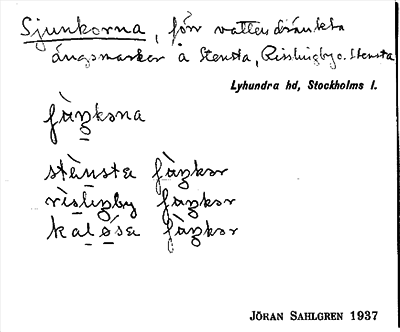 Sjunkorna, förr vattendränkta
ängsmarker å Stensta, Rislingby o. Stensta
Lyhundra hd, Stockholms l.
fàŋkəna
stènsta fàŋkər
rìsliŋby fàŋkər
fàŋkər
JÖRAN SAHLGREN 1937